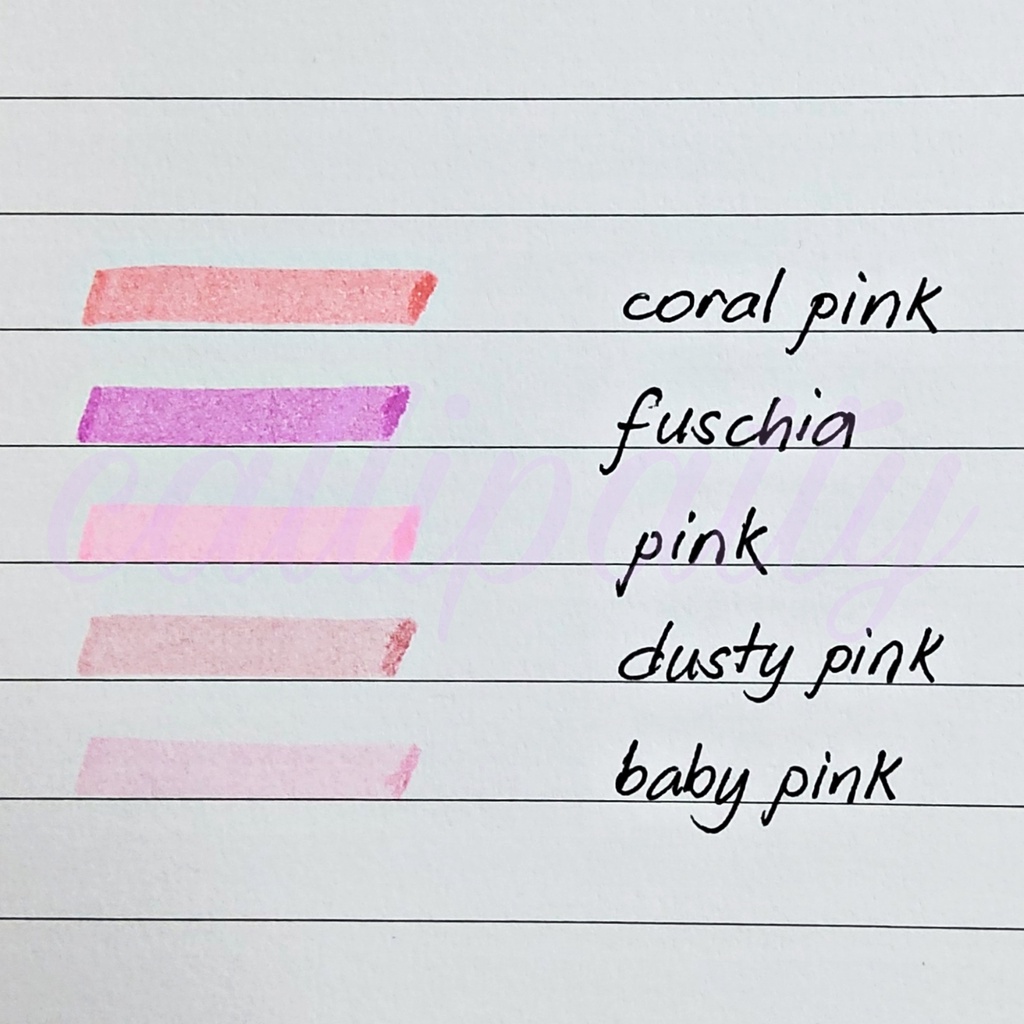 coral pink
fuschia
pink
dusty pink
baby pink
callipatty